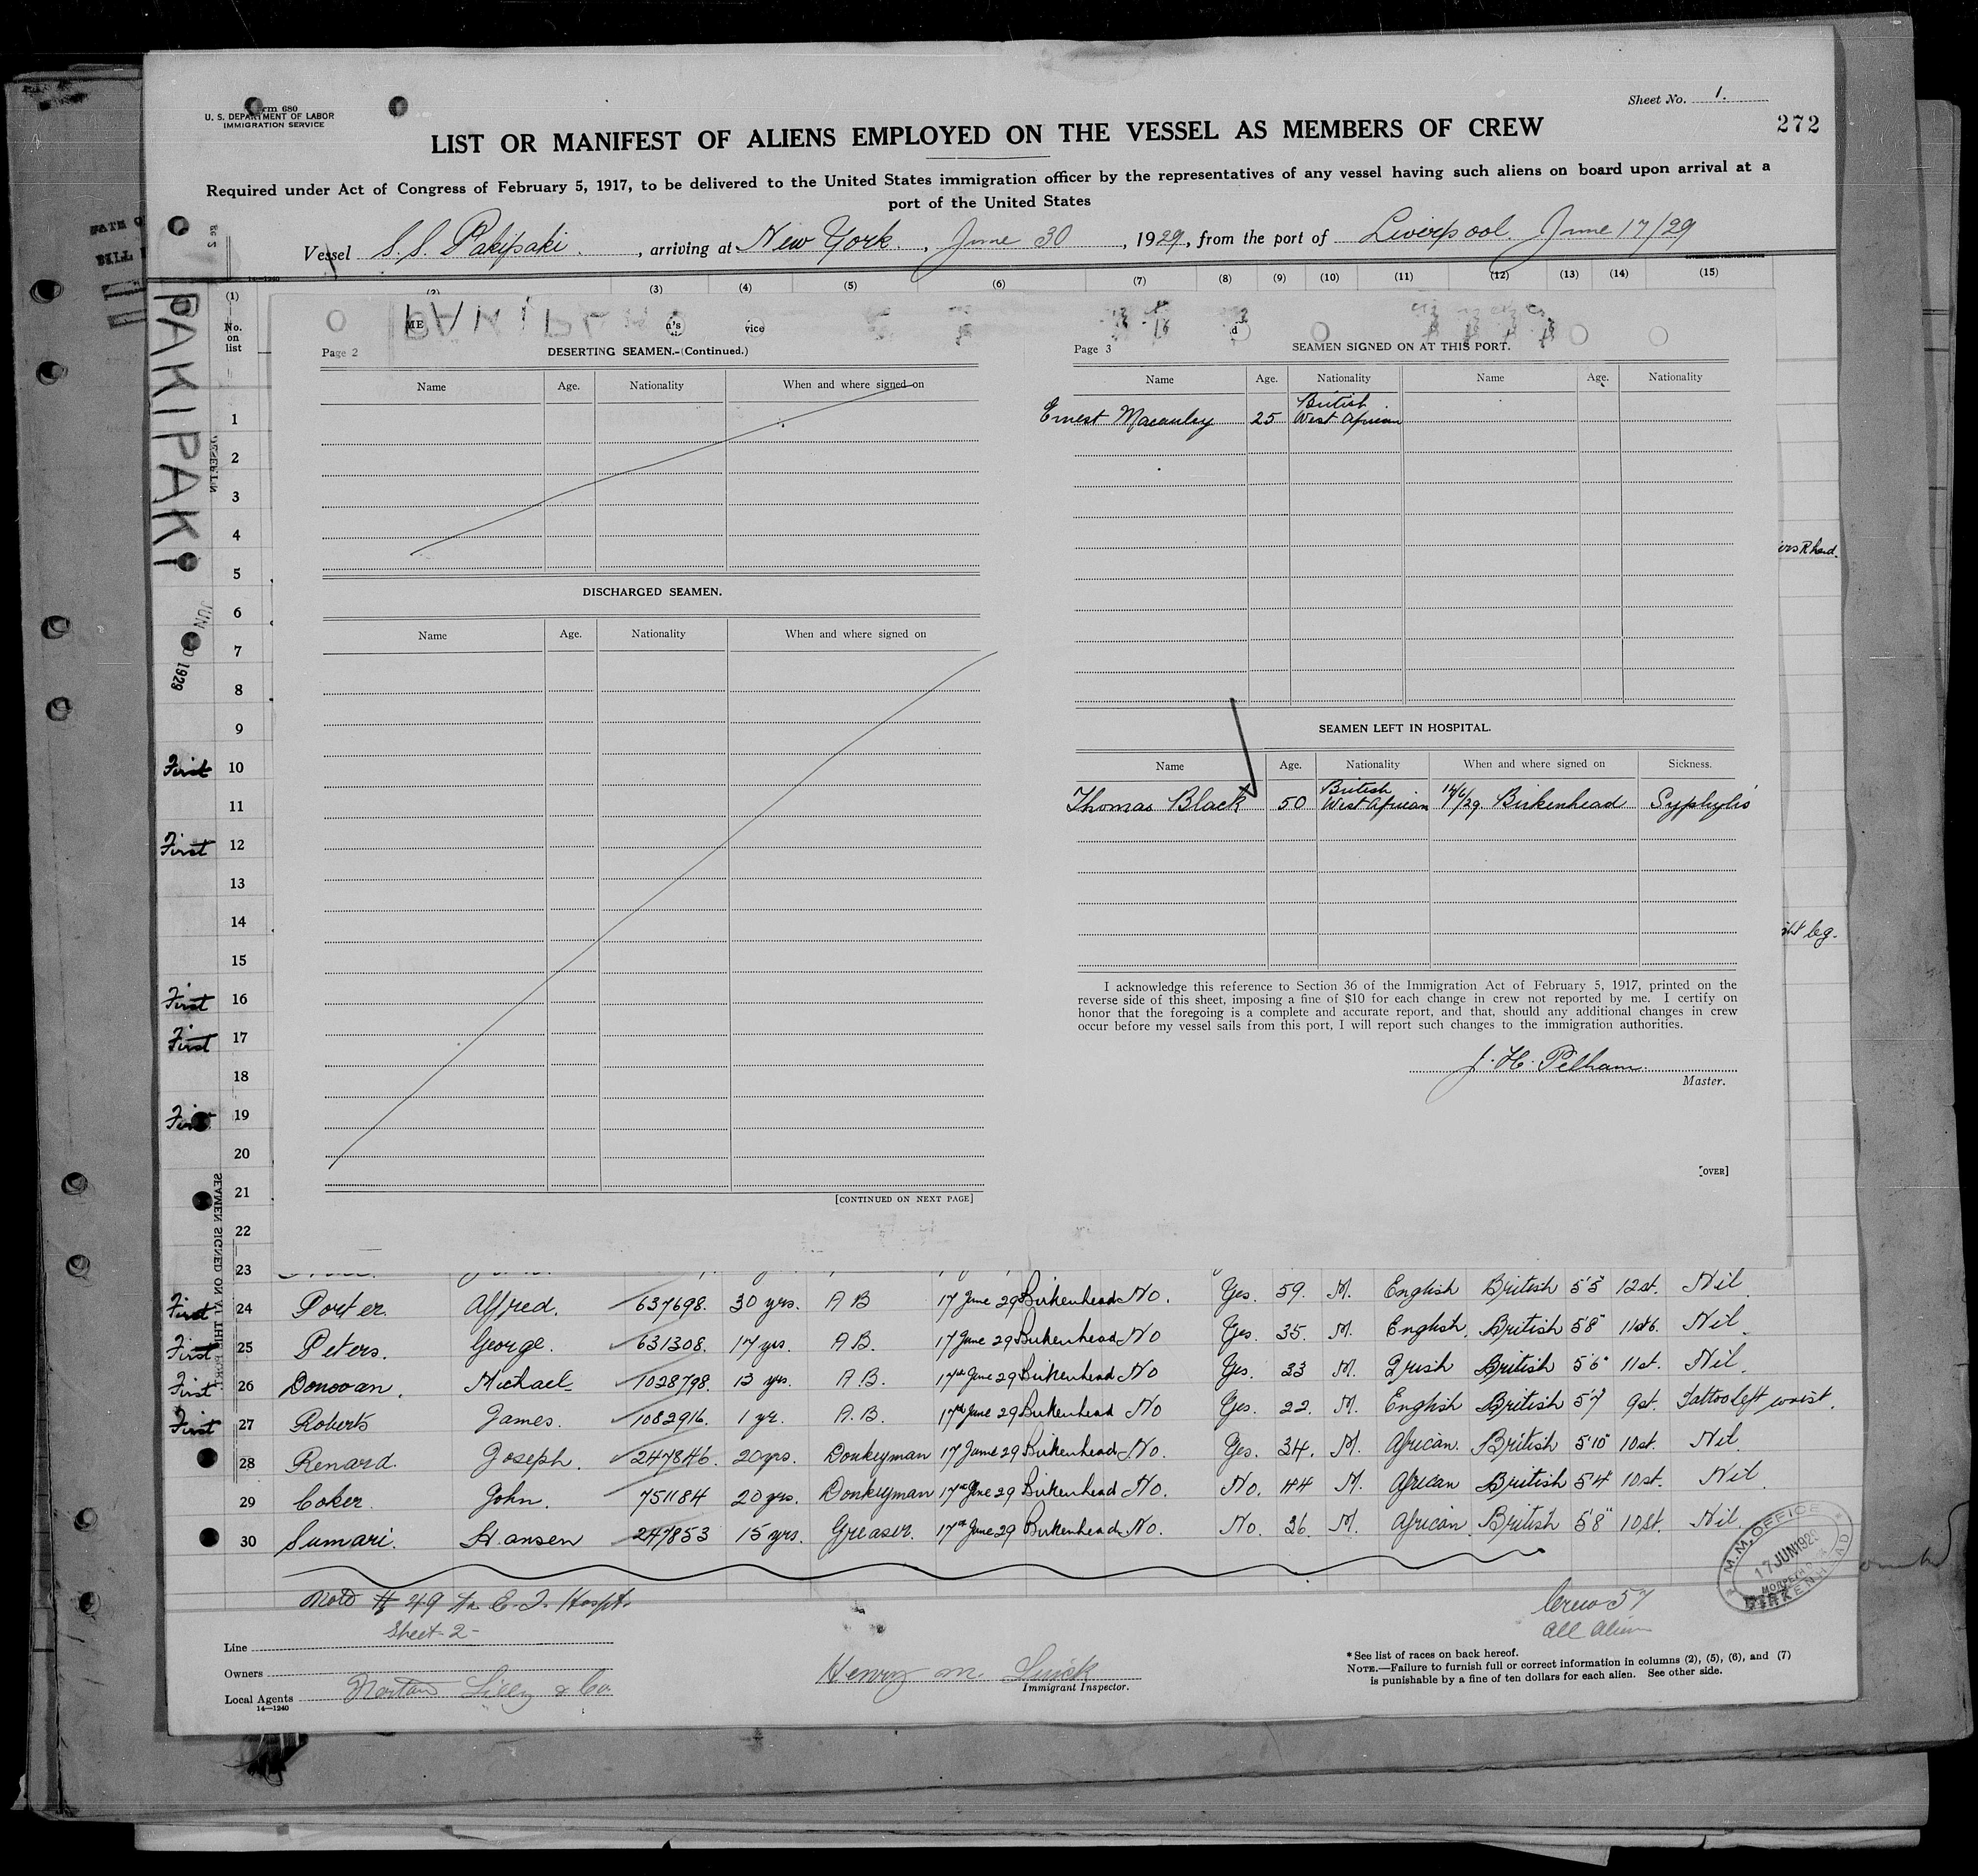 Form 680
U. S. DEPARTMENT OF LABOR
IMMIGRATION SERVICE
Sheet No. 1.
272
LIST OR MANIFEST OF ALIENS EMPLOYED ON THE VESSEL AS MEMBERS OF CREW
Required under Act of Congress of February 5, 1917, to be delivered to the United States immigration officer by the representatives of any vessel having such aliens on board upon arrival at a
port of the United States
Vessel S.S. Pakipaki, arriving at New York, June 30, 1929, from the port of Liverpool. June 17/29
(1) (2) (3) (4) (5) (6) (7) (8) (9) (10) (11) (12) (13) (14) (15)
No. on list
PAKIPAKI
JUN 1929
Page 2
DESERTING SEAMEN.-(Continued.)
Name Age. Nationality When and where signed on
DISCHARGED SEAMEN.
Name Age. Nationality When and where signed on
[CONTINUED ON NEXT PAGE]
Page 3
SEAMEN SIGNED ON AT THIS PORT.
Name Age. Nationality Name Age. Nationality
Ernest Macauley 25 British West African
SEAMEN LEFT IN HOSPITAL.
Name Age. Nationality When and where signed on Sickness.
Thomas Black 50 British West African 14/6/29 Birkenhead Syphylis
I acknowledge this reference to Section 36 of the Immigration Act of February 5, 1917, printed on the
reverse side of this sheet, imposing a fine of $10 for each change in crew not reported by me. I certify on
honor that the foregoing is a complete and accurate report, and that, should any additional changes in crew
occur before my vessel sails from this port, I will report such changes to the immigration authorities.
J. H. Pelham
Master.
[OVER]
1
2
3
4
5
6
7
8
9
First 10
11
First 12
13
14
15
First 16
First 17
18
First 19
20
21
22
23
First 24 Porter. Alfred. 637698. 30 yrs. A B 17 June 29 Birkenhead No. Yes. 59. M. English British 5'5" 12st. Nil
First 25 Peters. George. 631308. 17 yrs. A B. 17 June 29 Birkenhead No Yes. 35. M. English. British 5'8" 11st6. Nil.
First 26 Donovan. Michael 1028798. 13 yrs. A.B. 17th June 29 Birkenhead No Yes. 33 M. Irish British 5'6" 11st. Nil.
First 27 Roberts James. 1082916. 1 yr. A.B. 17th June 29 Birkenhead No Yes. 22. M. English British 5'7 9st. Tattoo left wrist.
28 Renard. Joseph. 247846. 20 yrs. Donkeyman 17 June 29 Birkenhead No. Yes. 34. M. African. British 5'10" 10st. Nil.
29 Coker. John. 751184 20 yrs. Donkeyman 17th June 29 Birkenhead No. No. 44 M. African British 5'4" 10st. Nil
30 Sumari. Hansen 247853 15 yrs. Greaser. 17th June 29 Birkenhead No. No. 36 M. African. British 5'8" 10st. Nil
M.M. OFFICE
17 JUN 1929
MORPETH
BIRKENHEAD
Note # 49 In E. I. Hospt.
Sheet 2
Crew 57
All Alien
Line
Owners
Local Agents Norton Lilly & Co
14—1240
Henry M.
Immigrant Inspector.
* See list of races on back hereof.
NOTE.—Failure to furnish full or correct information in columns (2), (5), (6), and (7)
is punishable by a fine of ten dollars for each alien. See other side.